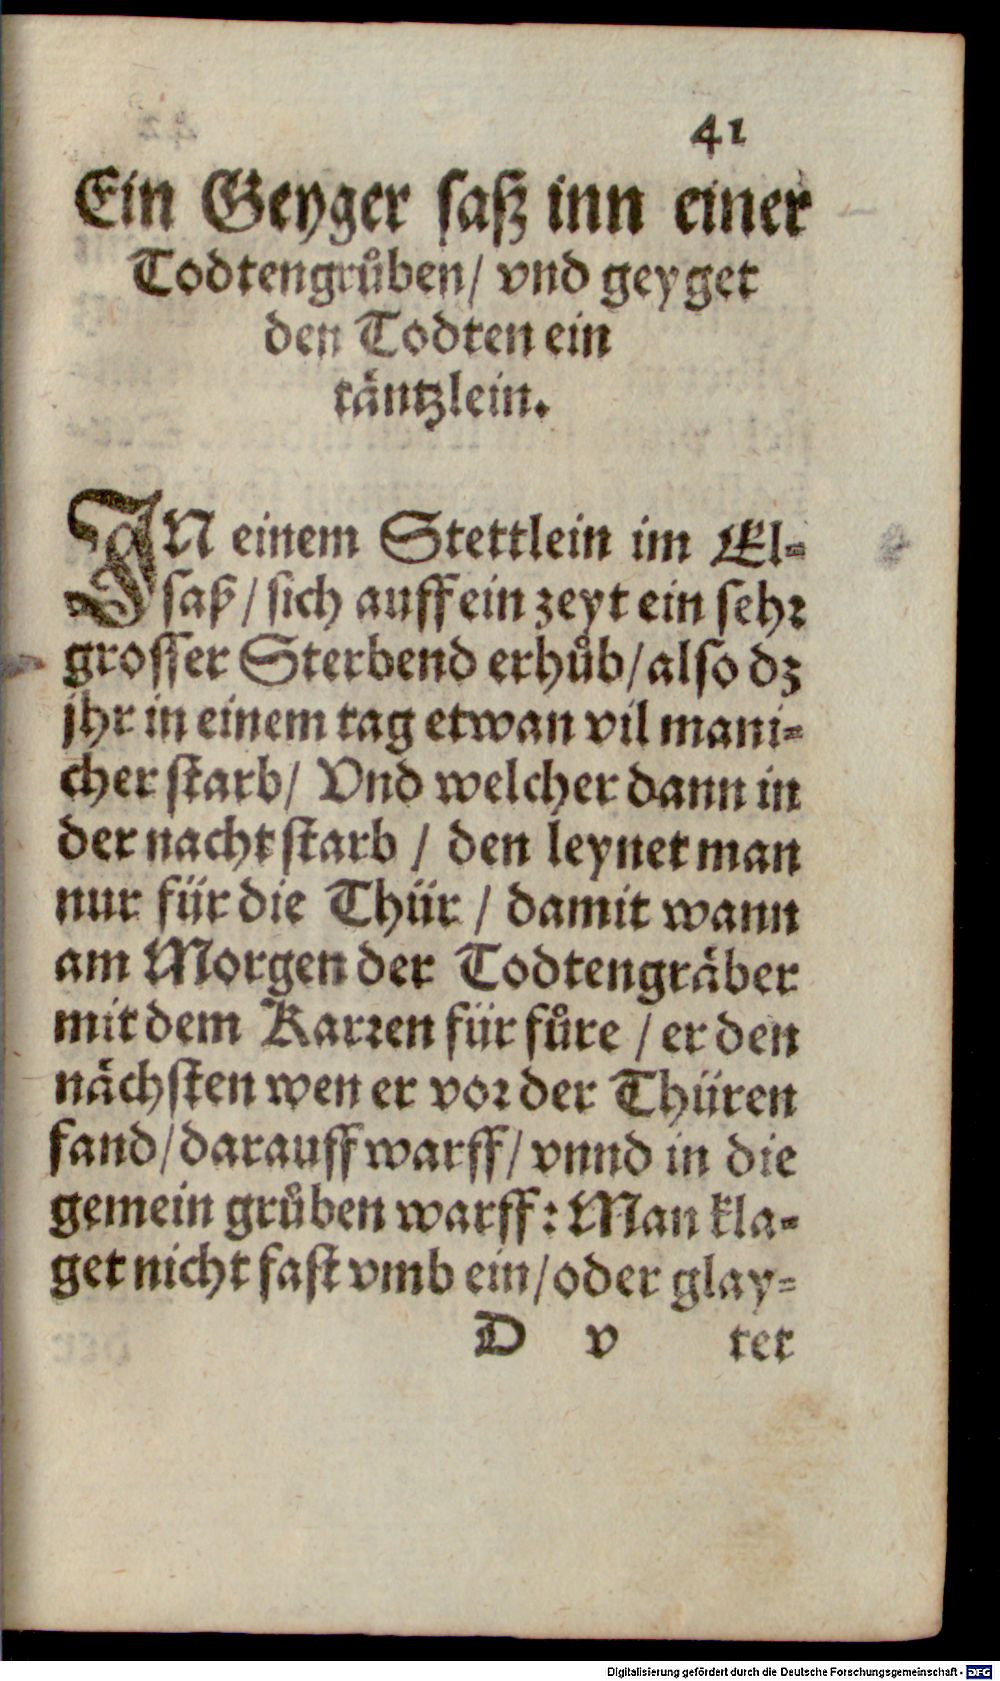 41
Ein Geyger saſz inn einer
Todtengruͦben/ vnd geyget
den Todten ein
taͤntzlein.
IN einem Stettlein im El⸗
saß/ sich auff ein zeyt ein sehr
grosser Sterbend erhuͦb/ also dz
jhr in einem tag etwan vil mani⸗
cher starb/ Vnd welcher dann in
der nacht starb / den leynet man
nur für die Thür / damit wann
am Morgen der Todtengraͤber
mit dem Karren für fuͦre / er den
naͤchsten wen er vor der Thüren
fand/ darauff warff/ vnnd in die
gemein gruͦben warff: Man kla⸗
get nicht fast vmb ein/ oder glay⸗
D v tet
Digitalisierung gefördert durch die Deutsche Forschungsgemeinschaft - DFG